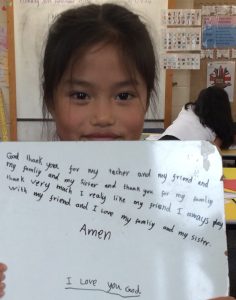 God thank you for my techer and my friend and
my family and my sister and thank you for my family
thank very mach I realy like my friend I always play
with my friend and I love my family and my sister.
Amen
I love you God